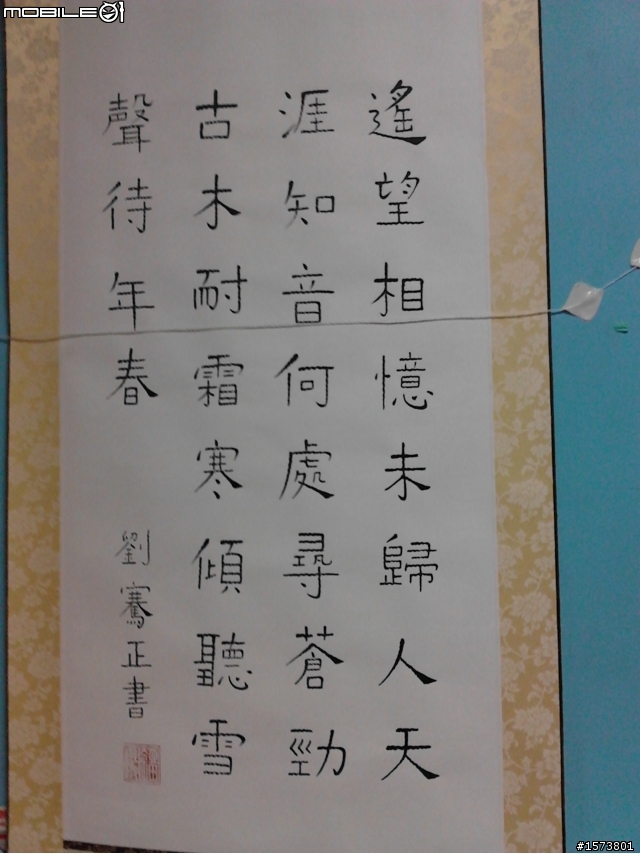 MOBILE01
遙望相憶未歸人天
涯知音何處尋蒼勁
古木耐霜寒傾聽雪
聲待年春
劉騫正書
#1573801